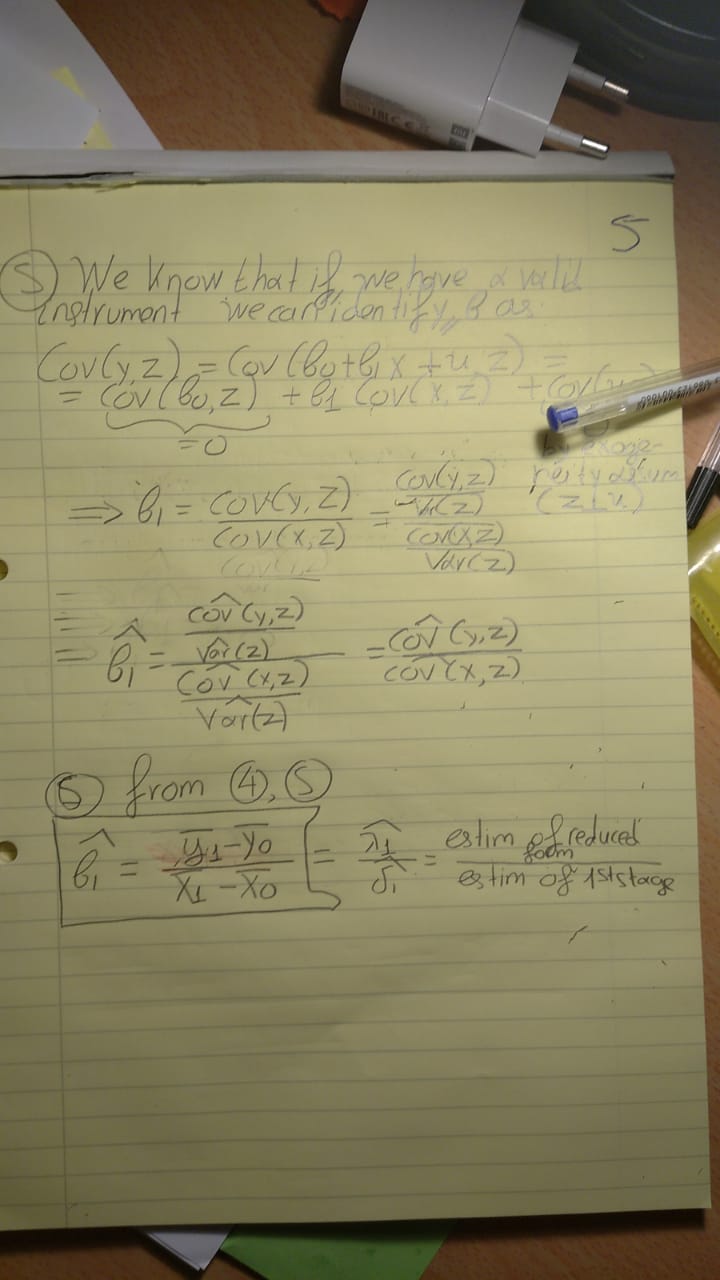 5
⑤ We know that if we have a valid
instrument we can identify β as
Cov(y,z) = Cov(β0+β1x+u,z) =
= Cov(β0,z) + β1 Cov(x,z) + Cov(u
=0
by exoge-
neity assum
(z⊥u)
⇒ β1 = Cov(y,z)/Cov(x,z) = (Cov(y,z)/Var(z))/(Cov(x,z)/Var(z))
β̂1 = (Côv(y,z)/Vâr(z))/(Côv(x,z)/Vâr(z)) = Côv(y,z)/Côv(x,z)
⑥ from ④, ⑤
β̂1 = (ȳ1-ȳ0)/(x̄1-x̄0) = λ̂1/δ̂1 = estim of reduced form/estim of 1st stage